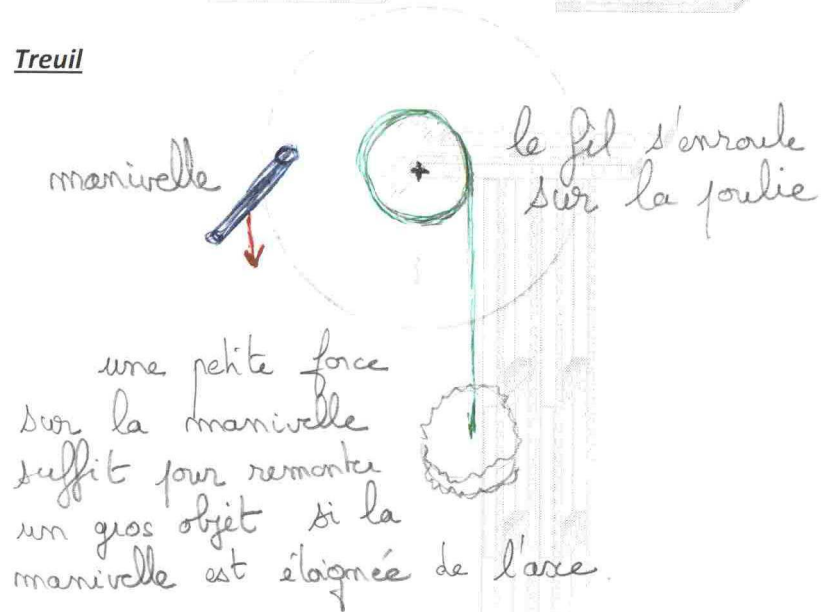 Treuil
manivelle
le fil s'enroule
sur la poulie
une petite force
sur la manivelle
suffit pour remonter
un gros objèt si la
manivelle est éloignée de l'axe.